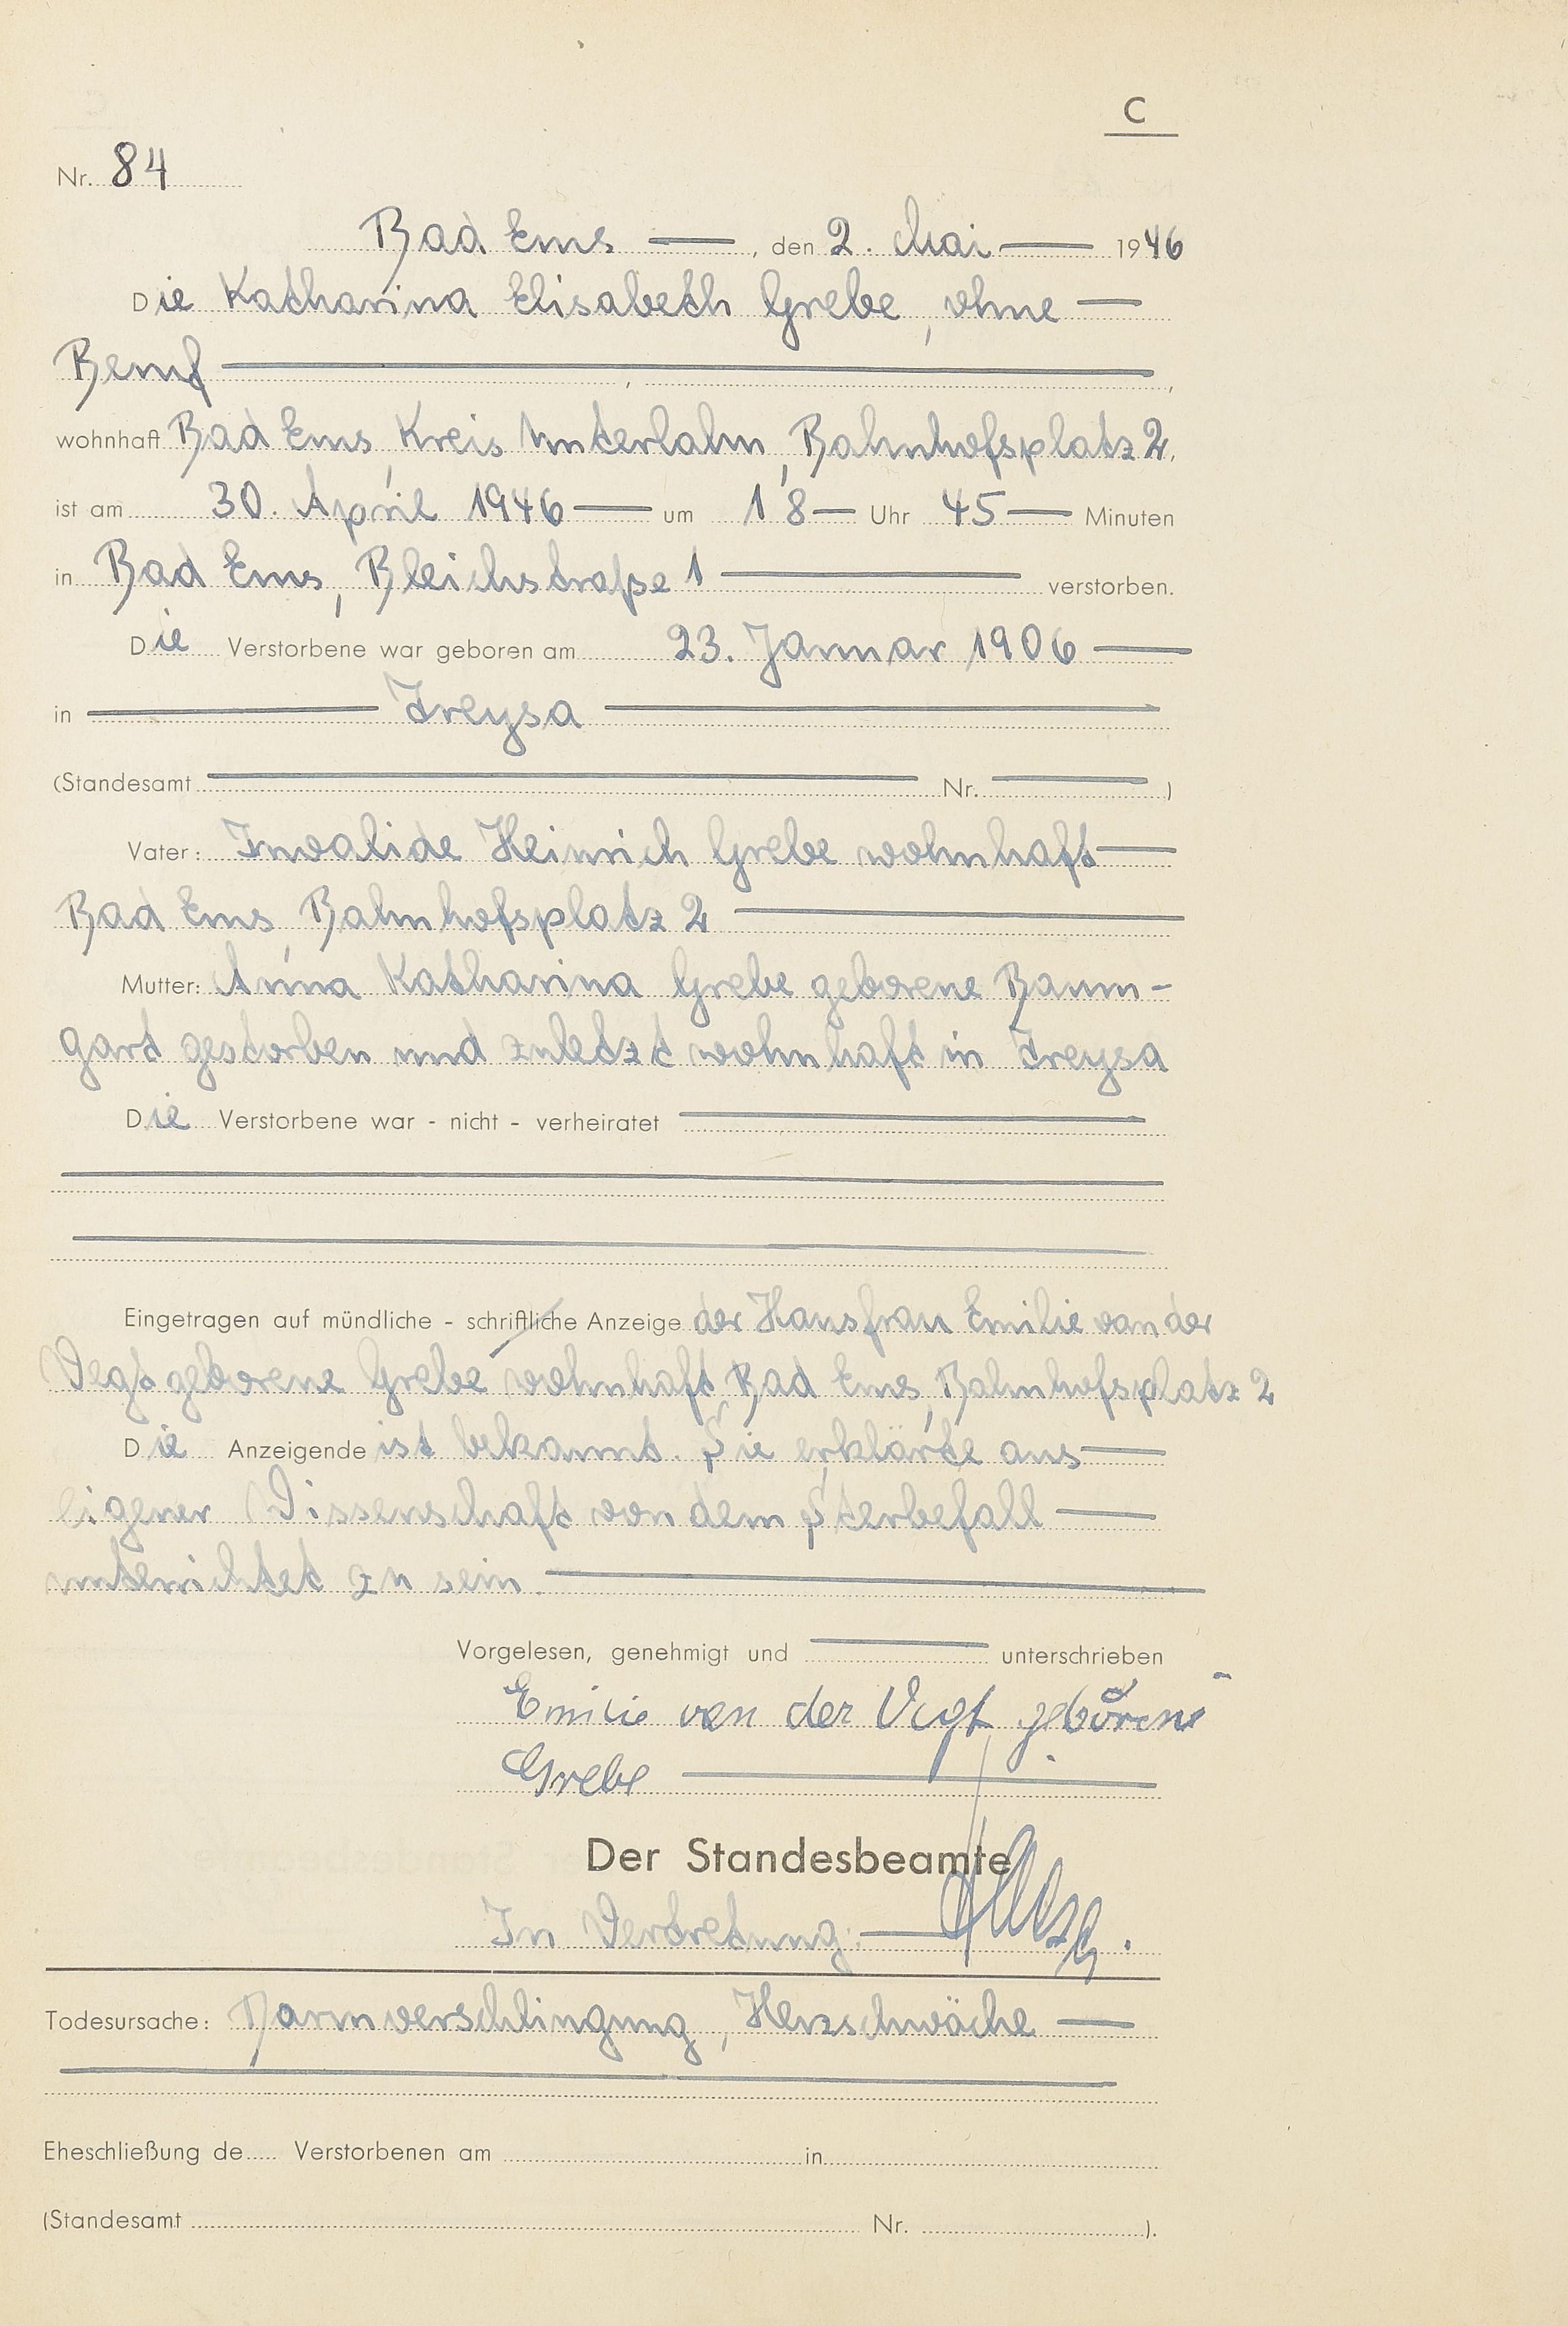 C
Nr. 84
Bad Ems —, den 2. Mai — 1946
Die Katharina Elisabeth Grebe, ohne —
Beruf —,
wohnhaft Bad Ems, Kreis Unterlahn, Bahnhofsplatz 2,
ist am 30. April 1946 — um 18 — Uhr 45 — Minuten
in Bad Ems, Bleichstraße 1 — verstorben.
Die Verstorbene war geboren am 23. Januar 1906 —
in — Treysa —
(Standesamt — Nr. — )
Vater: Invalide Heinrich Grebe wohnhaft —
Bad Ems, Bahnhofsplatz 2 —
Mutter: Anna Katharina Grebe geborene Baum-
gart gestorben und zuletzt wohnhaft in Treysa
Die Verstorbene war - nicht - verheiratet —
Eingetragen auf mündliche - schriftliche Anzeige der Hausfrau Emilie van der
Vegt geborene Grebe wohnhaft Bad Ems, Bahnhofsplatz 2
Die Anzeigende ist bekannt. Sie erklärte aus —
eigener Wissenschaft von dem Sterbefall —
unterrichtet zu sein. —
Vorgelesen, genehmigt und — unterschrieben
Emilie van der Vegt geborene
Grebe —
Der Standesbeamte
In Vertretung: —
Todesursache: Darmverschlingung, Herzschwäche —
Eheschließung de..... Verstorbenen am ..... in .....
(Standesamt ..... Nr. ..... ).